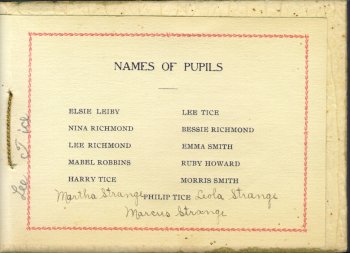 NAMES OF PUPILS
ELSIE LEIBY LEE TICE
NINA RICHMOND BESSIE RICHMOND
LEE RICHMOND EMMA SMITH
MABEL ROBBINS RUBY HOWARD
HARRY TICE MORRIS SMITH
Martha Strange PHILIP TICE Leola Strange
Marcus Strange
Lee Tice